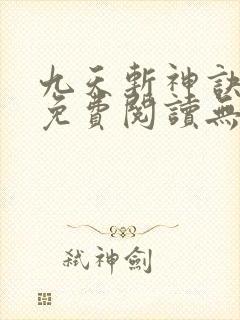 九天斬神訣
免費閱讀無
弒神劍